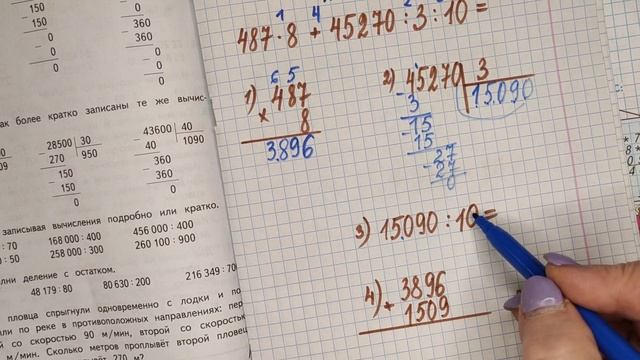 487 · 8 + 45270 : 3 : 10 =
1 4
1) 487
65
× 8
3.896
2) 45270 3
15.090
- 3
- 15
15
- 27
27
0
3) 15.090 : 10 =
4) 3896
+ 1509
- 150
150
0
- 360
- 360
0
0
ак более кратко записаны те же вычис-
28500 30
270 950
- 150
150
0
- 43600 40
40 1090
- 360
360
0
записывая вычисления подробно или кратко.
: 70 168 000 : 400 456 000 : 400
: 50 258 000 : 300 260 100 : 900
лни деление с остатком.
48 179 : 80 80 630 : 200 216 349 : 70
пловца спрыгнули одновременно с лодки и по
ли по реке в противоположных направлениях: пер
й со скоростью 90 м/мин, второй со скорость
м/мин. Сколько метров проплывёт второй пловец
лывёт 270 м?